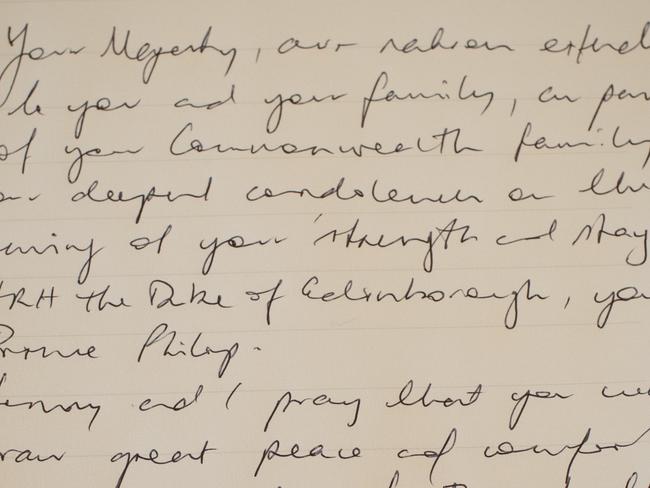 Your Majesty, our nation extend
to you and your family, as part
of your Commonwealth family
our deepest condolences on the
of your 'strength and stay
HRH the Duke of Edinborough, your
Prince Philip.
Jenny and I pray that you will
draw great peace and comfort